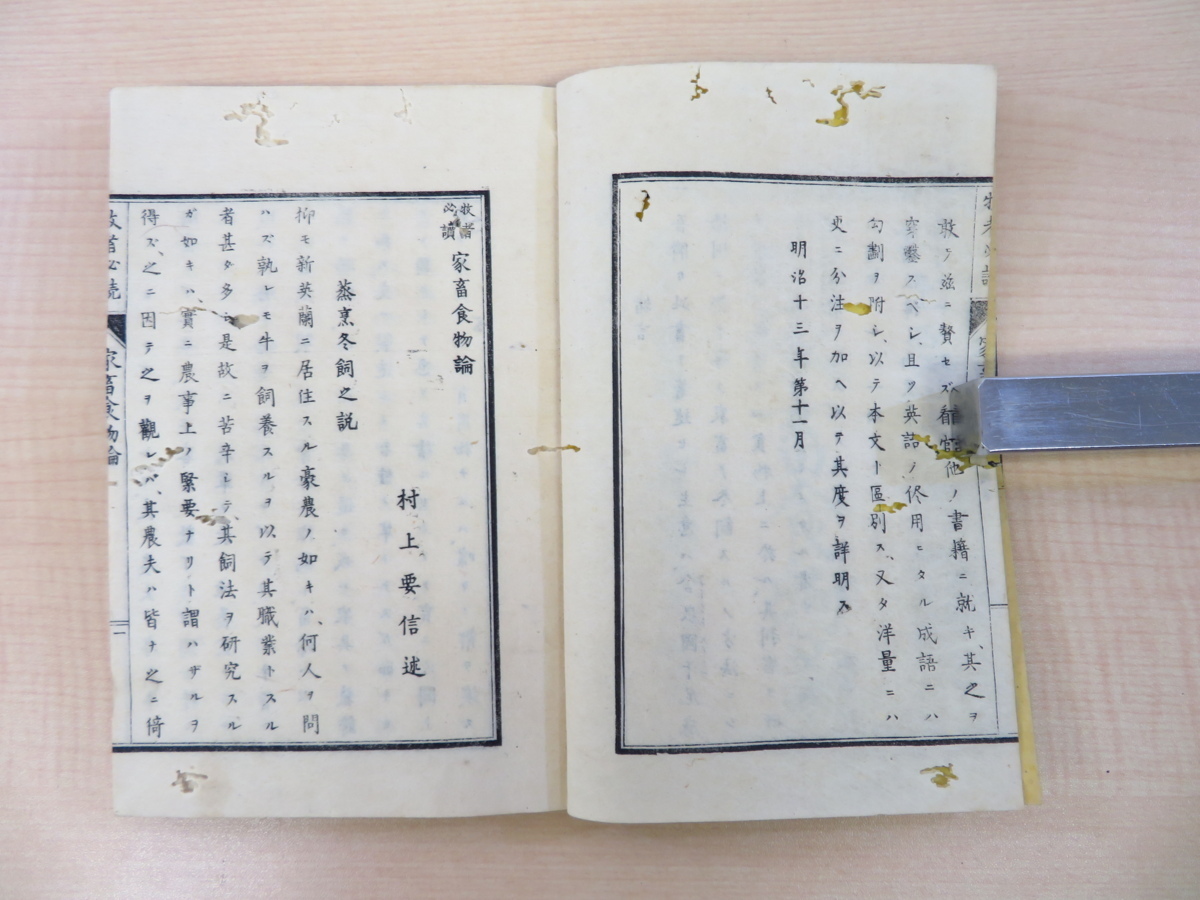 敢テ茲ニ贅セズ看官他ノ書籍ニ就キ、其之ヲ
穿鑿スベシ、且ツ英語ノ侭用ヒタル成語ニハ
勾劃ヲ附シ、以テ本文ト區別ス、又タ洋量ニハ
更ニ分注ヲ加ヘ以テ其度ヲ詳明ス
明治十三年第十一月
牧者必讀 家畜食物論
村上要信述
蒸烹冬飼之説
抑モ新英蘭ニ居住スル豪農ノ如キハ、何人ヲ問
ハズ孰レモ牛ヲ飼養スルヲ以テ其職業トスル
者甚タ多シ是故ニ苦辛シテ其飼法ヲ研究スル
ガ如キハ、實ニ農事上ノ緊要ナリト謂ハザルヲ
得ズ、之ニ因テ之ヲ觀レバ、其農夫ハ皆ナ之ニ倚
牧者必読 家畜食物論 一